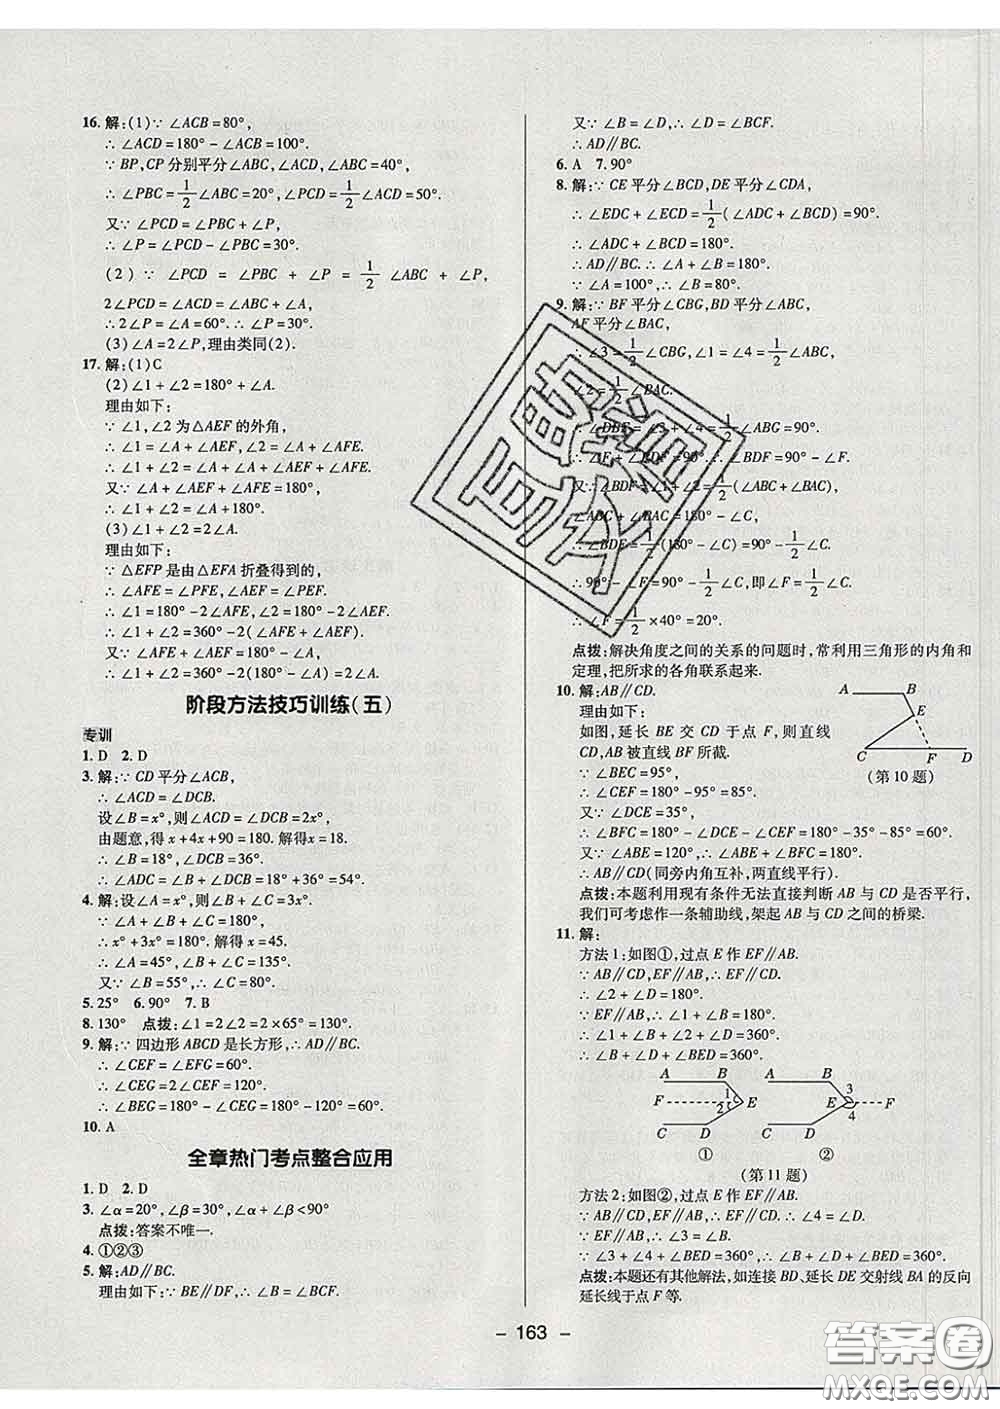 16. 解:(1)∵ ∠ACB=80°,
∴ ∠ACD=180°-∠ACB=100°.
∵ BP,CP 分别平分∠ABC,∠ACD,∠ABC=40°,
∴ ∠PBC=1/2∠ABC=20°,∠PCD=1/2∠ACD=50°.
又∵ ∠PCD=∠PBC+∠P,
∴ ∠P=∠PCD-∠PBC=30°.
(2)∵ ∠PCD=∠PBC+∠P=1/2∠ABC+∠P,
2∠PCD=∠ACD=∠ABC+∠A,
∴ 2∠P=∠A=60°.∴ ∠P=30°.
(3)∠A=2∠P,理由类同(2).
17. 解:(1)C
(2)∠1+∠2=180°+∠A.
理由如下:
∵ ∠1,∠2为△AEF的外角,
∴ ∠1=∠A+∠AEF,∠2=∠A+∠AFE.
∴ ∠1+∠2=∠A+∠AEF+∠A+∠AFE.
又∵ ∠A+∠AEF+∠AFE=180°,
∴ ∠1+∠2=180°+∠A.
(3)∠1+∠2=2∠A.
理由如下:
∵ △EFP是由△EFA折叠得到的,
∴ ∠AFE=∠PFE,∠AEF=∠PEF.
∴ ∠1=180°-2∠AFE,∠2=180°-2∠AEF.
∴ ∠1+∠2=360°-2(∠AFE+∠AEF).
又∵ ∠AFE+∠AEF=180°-∠A,
∴ ∠1+∠2=360°-2(180°-∠A)=2∠A.
阶段方法技巧训练(五)
专训
1. D 2. D
3. 解:∵ CD平分∠ACB,
∴ ∠ACD=∠DCB.
设∠B=x°,则∠ACD=∠DCB=2x°,
由题意,得 x+4x+90=180.解得x=18.
∴ ∠B=18°,∠DCB=36°.
∴ ∠ADC=∠B+∠DCB=18°+36°=54°.
4. 解:设∠A=x°,则∠B+∠C=3x°.
∵ ∠A+∠B+∠C=180°,
∴ x°+3x°=180°.解得 x=45.
∴ ∠A=45°,∠B+∠C=135°.
又∵ ∠B=55°,∴ ∠C=80°.
5. 25° 6. 90° 7. B
8. 130° 点拨:∠1=2∠2=2×65°=130°.
9. 解:∵ 四边形ABCD是长方形,∴ AD∥BC.
∴ ∠CEF=∠EFG=60°.
∴ ∠CEG=2∠CEF=120°.
∴ ∠BEG=180°-∠CEG=180°-120°=60°.
10. A
全章热门考点整合应用
1. D 2. D
3. ∠α=20°,∠β=30°,∠α+∠β<90°
点拨:答案不唯一.
4. ①②③
5. 解:AD∥BC.
理由如下:∵ BE∥DF,∴ ∠B=∠BCF.
又∵ ∠B=∠D,∴ ∠D=∠BCF.
∴ AD∥BC.
6. A 7. 90°
8. 解:∵ CE平分∠BCD,DE平分∠CDA,
∴ ∠EDC+∠ECD=1/2(∠ADC+∠BCD)=90°.
∴ ∠ADC+∠BCD=180°.
∴ AD∥BC.∴ ∠A+∠B=180°.
∵ ∠A=100°,∴ ∠B=80°.
9. 解:∵ BF平分∠CBG,BD平分∠ABC,
AF平分∠BAC,
∴ ∠3=1/2∠CBG,∠1=∠4=1/2∠ABC,
∠2=1/2∠BAC.
∴ ∠DBF=∠3+∠4=1/2∠ABG=90°.
∴ ∠F+∠BDF=90°.∴ ∠BDF=90°-∠F.
又∵ ∠BDF=∠1+∠2=1/2(∠ABC+∠BAC),
∠ABC+∠BAC=180°-∠C,
∴ ∠BDE=1/2(180°-∠C)=90°-1/2∠C.
∴ 90°-∠F=90°-1/2∠C,即∠F=1/2∠C.
∴ ∠F=1/2×40°=20°.
点拨:解决角度之间的关系的问题时,常利用三角形的内角和
定理,把所求的各角联系起来.
10. 解:AB∥CD.
理由如下:
如图,延长 BE 交 CD 于点 F,则直线
CD,AB被直线BF所截.
∵ ∠BEC=95°,
∴ ∠CEF=180°-95°=85°.
又∵ ∠DCE=35°,
A B E C F D
(第10题)
∴ ∠BFC=180°-∠DCE-∠CEF=180°-35°-85°=60°.
又∵ ∠ABE=120°,∴ ∠ABE+∠BFC=180°.
∴ AB∥CD(同旁内角互补,两直线平行).
点拨:本题利用现有条件无法直接判断 AB 与 CD 是否平行,
我们可考虑作一条辅助线,架起 AB 与 CD 之间的桥梁.
11. 解:
方法1:如图①,过点E作EF∥AB.
∵ AB∥CD,∴ EF∥CD.
∴ ∠2+∠D=180°.
∵ EF∥AB,∴ ∠1+∠B=180°.
∴ ∠1+∠2+∠B+∠D=360°.
∴ ∠B+∠D+∠BED=360°.
A B F 1 2 E C D
A B 3 E 4 F C D
① ②
(第11题)
方法2:如图②,过点E作EF∥AB.
∵ AB∥CD,∴ EF∥CD.∴ ∠4=∠D.
∵ EF∥AB,∴ ∠3=∠B.
∵ ∠3+∠4+∠BED=360°,∴ ∠B+∠D+∠BED=360°.
点拨:本题还有其他解法,如连接BD、延长DE交射线BA的反向
延长线于点F等.
- 163 -
答案卷
MXQE.COM